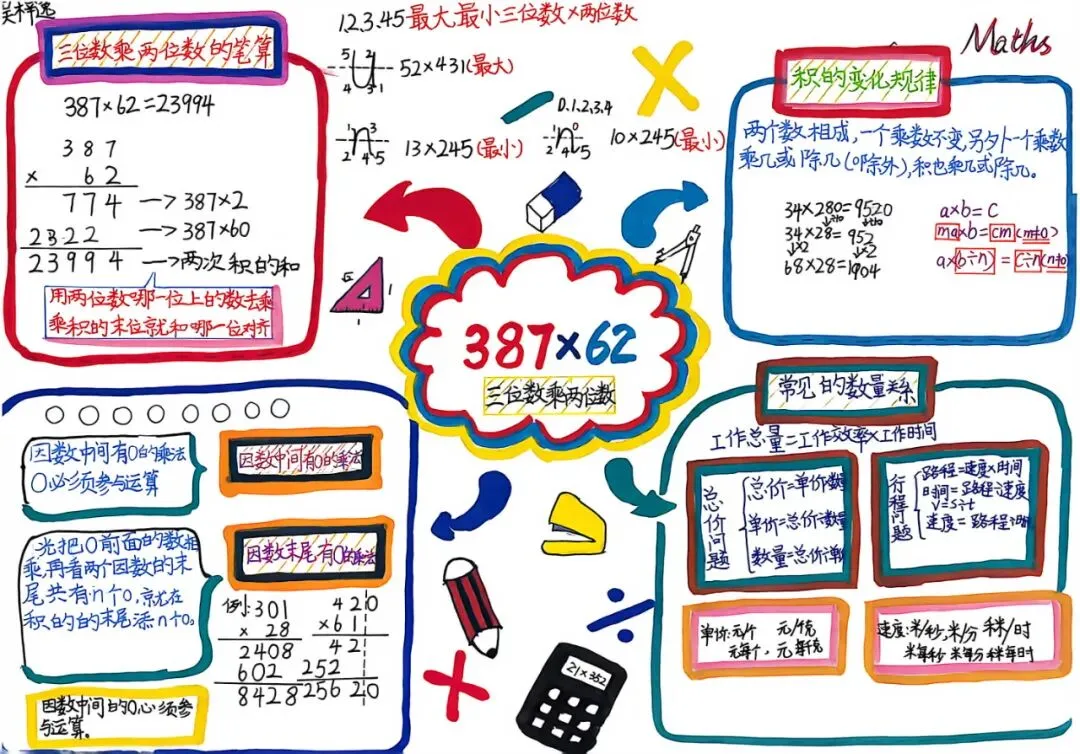 三位数乘两位数的笔算
387×62=23994
387
× 62
774 → 387×2
2322 → 387×60
23994 → 两次积的和
用两位数哪一位上的数去乘
乘积的末位就和哪一位对齐
1.2.3.4.5最大、最小三位数×两位数
5 2
4 3 1
52×431(最大)
1 3
2 4 5
13×245(最小)
0.1.2.3.4
1 0
2 4 5
10×245(最小)
Maths
积的变化规律
两个数相成,一个乘数不变,另外一个乘数
乘几或除几(0除外),积也乘几或除几。
34×280=9520
÷10 ÷10
34×28=952
×2 ×2
68×28=1904
a×b=c
ma×b=cm(m≠0)
a×(b÷n)=c÷n(n≠0)
387×62
三位数乘两位数
因数中间有0的乘法
0必须参与运算
因数中间有0的乘法
先把0前面的数相
乘,再看两个因数的末
尾共有n个0,就在
积的的末尾添n个0。
因数末尾有0的乘法
例:301
× 28
2408
602
8428
420
×61
42
252
25620
因数中间的0必须参
与运算。
常见的数量关系
工作总量=工作效率×工作时间
总价问题
总价=单价×数量
单价=总价÷数量
数量=总价÷单价
行程问题
路程=速度×时间
时间=路程÷速度
v=s÷t
速度=路程÷时间
单价:元/个 元/千克
元每个, 元每千克
速度:米/秒,米/分 千米/时
米每秒 米每分 千米每时
√5
1
21×352